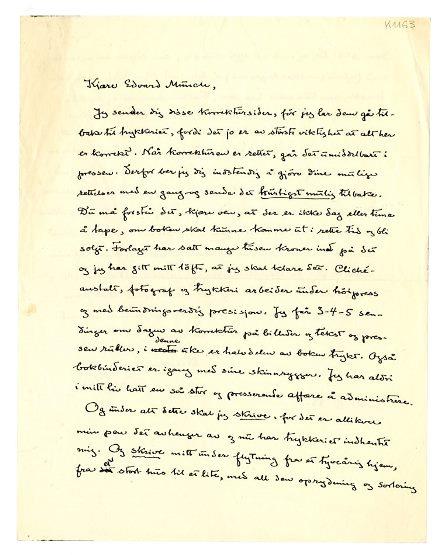 K1163
Kjære Edvard Munch,
Jeg sender dig disse korrektursider, før jeg lar dem gå til-
bake til trykkeriet, fordi det jo er av største viktighet at alt her
er korrekt. Når korrekturen er rettet, går det umiddelbart i
pressen. Derfor ber jeg dig indstændig å gjøre dine mulige
rettelser med en gang og sende det hurtigst mulig tilbake.
Du må forstå det, kjære ven, at der er ikke dag eller time
å tape, om boken skal kunne komme ut i rette tid og bli
solgt. Forlaget har satt mange tusen kroner ind på det
og jeg har gitt mitt løfte, at jeg skal klare det. Cliché-
anstalt, fotograf og trykkeri arbeider under høipress
og med beundringsverdig presisjon. Jeg får 3-4-5 sen-
dinger om dagen av korrektur på billeder og tekst og pres-
sen rubler, i denne uke er halvdelen av boken trykt. Også
bokbinderiet er igang med sine skinnrygger. Jeg har aldri
i mitt liv hatt en så stor og presserende affære å administrere.
Og under alt dette skal jeg skrive, for det er allikevel
min pen det avhenger av og nu har trykkeriet indhentet
mig. Og skrive mitt under flytning fra et tyveårig hjem,
fra et stort hus til et lite, med all den oprydning og sortering